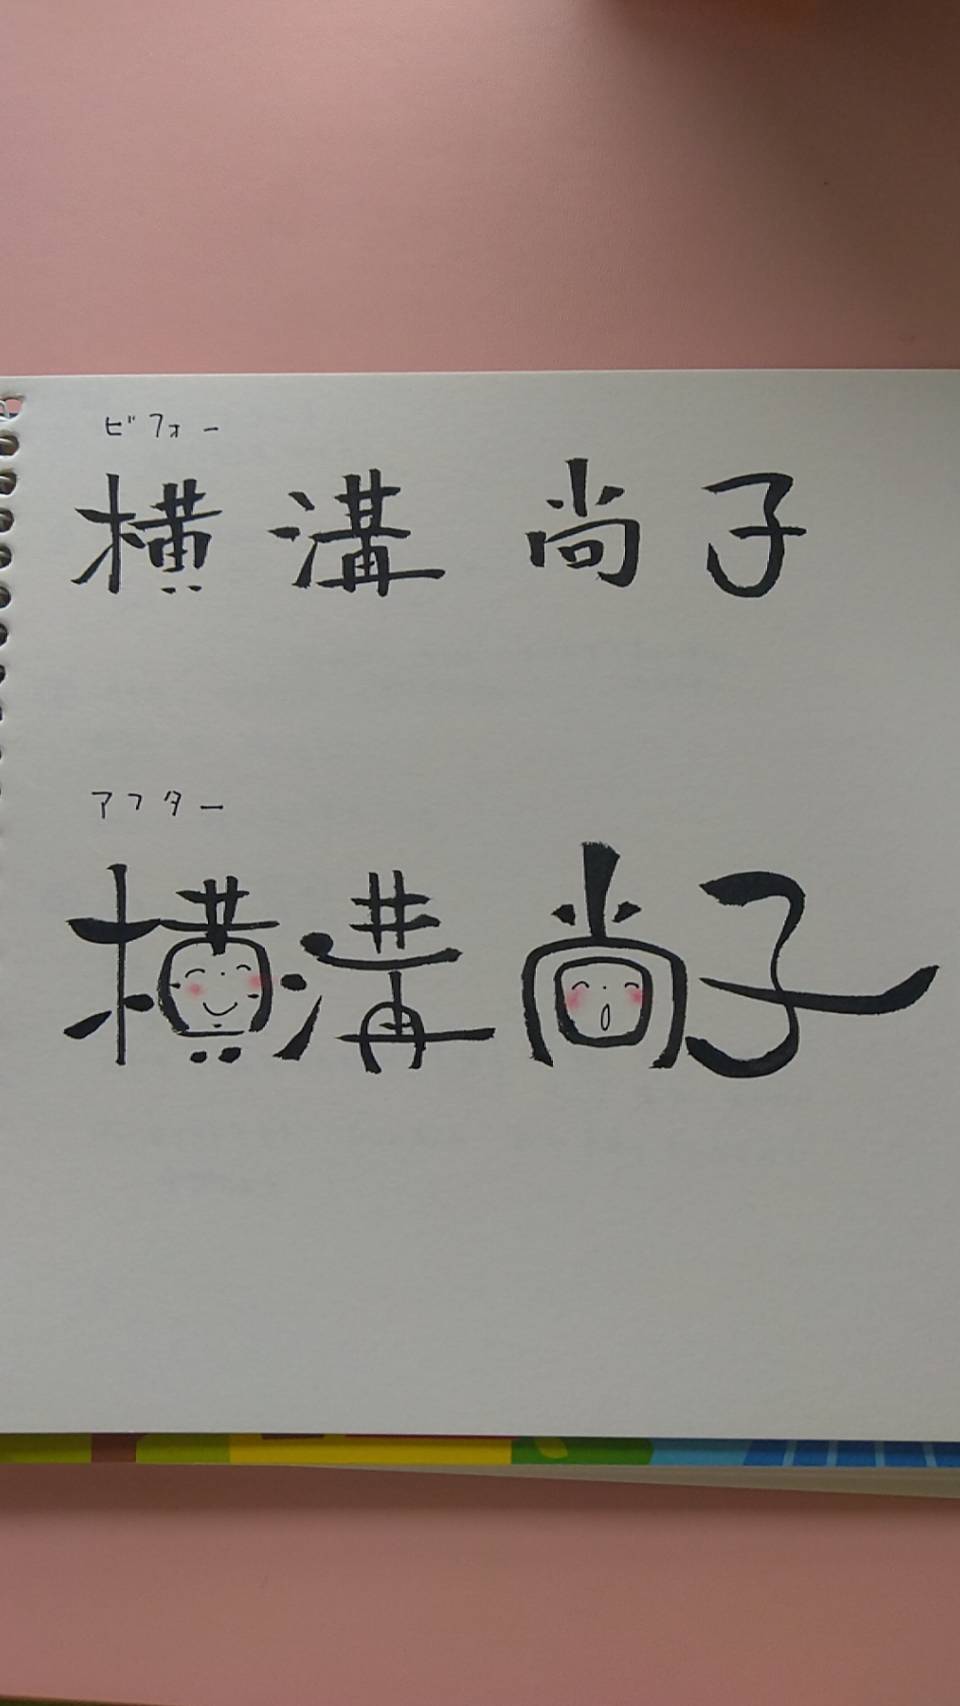 ビフォー
横溝 尚子
アフター
横溝 尚子